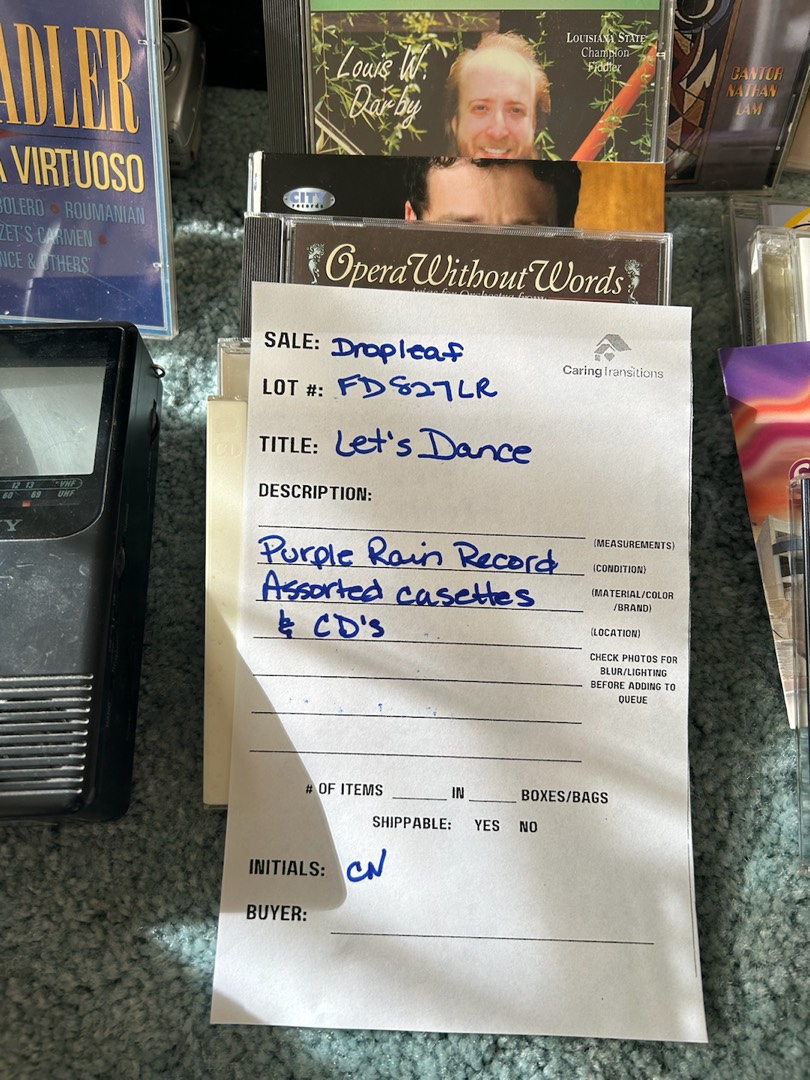 ADLER
VIRTUOSO
BOLERO • ROUMANIAN
ZET'S CARMEN •
NCE & OTHERS
Louis W.
Darby
LOUISIANA STATE
Champion
Fiddler
CANTOR
NATHAN
LAM
CITY
records
Opera Without Words
12 13 VHF
60 69 UHF
Caring Transitions
SALE: Dropleaf
LOT #: FD827LR
TITLE: Let's Dance
DESCRIPTION:
(MEASUREMENTS)
Purple Rain Record
(CONDITION)
Assorted casettes
(MATERIAL/COLOR
/BRAND)
& CD's
(LOCATION)
CHECK PHOTOS FOR
BLUR/LIGHTING
BEFORE ADDING TO
QUEUE
# OF ITEMS ____ IN ____ BOXES/BAGS
SHIPPABLE: YES NO
INITIALS: CN
BUYER: